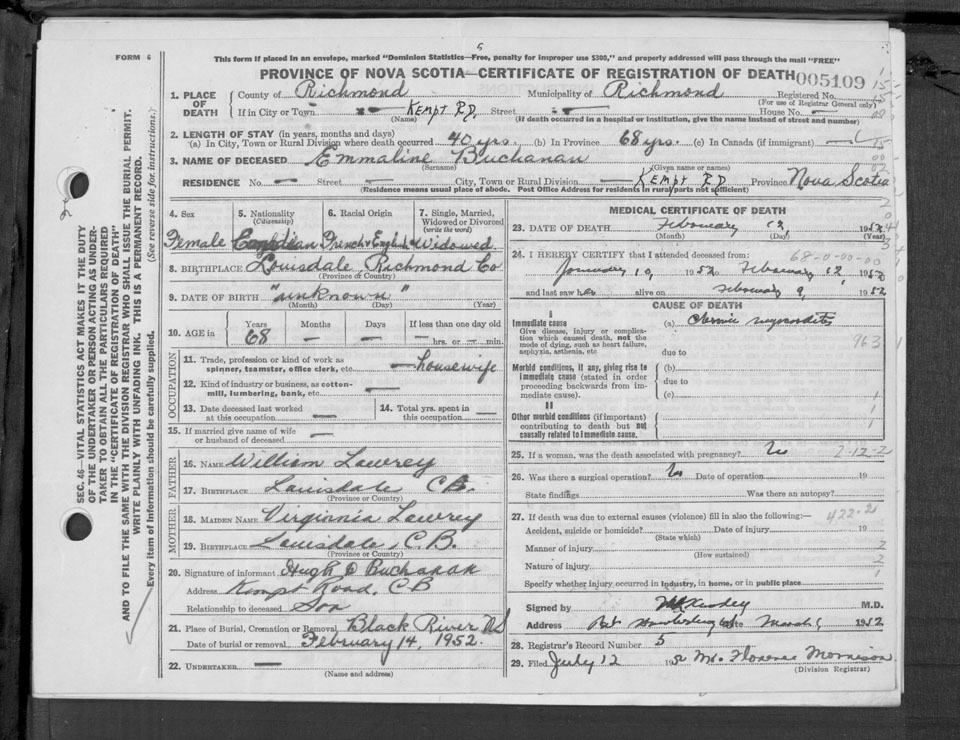 5
FORM 6
This form if placed in an envelope, marked "Dominion Statistics—Free, penalty for improper use $300," and properly addressed will pass through the mail "FREE"
PROVINCE OF NOVA SCOTIA—CERTIFICATE OF REGISTRATION OF DEATH 005109
1. PLACE OF DEATH
County of Richmond Municipality of Richmond Registered No.
(For use of Registrar General only)
If in City or Town Kempt Rd. Street House No.
(Name) (If death occurred in a hospital or institution, give the name instead of street and number)
2. LENGTH OF STAY (in years, months and days)
(a) In City, Town or Rural Division where death occurred 40 yrs. (b) In Province 68 yrs. (c) In Canada (if immigrant)
3. NAME OF DECEASED Emmaline Buchanan
(Surname) (Given name or names)
RESIDENCE No. — Street — City, Town or Rural Division Kempt Rd Province Nova Scotia
(Residence means usual place of abode. Post Office Address for residents in rural parts not sufficient)
4. Sex 5. Nationality (Citizenship) 6. Racial Origin 7. Single, Married, Widowed or Divorced (write the word)
Female Canadian French & English Widowed
8. BIRTHPLACE Louisdale, Richmond Co
(Province or Country)
9. DATE OF BIRTH "unknown"
(Month) (Day) (Year)
10. AGE in Years Months Days If less than one day old
68 — — hrs. or — min.
OCCUPATION
11. Trade, profession or kind of work as spinner, teamster, office clerk, etc. — housewife
12. Kind of industry or business, as cotton-mill, lumbering, bank, etc. —
13. Date deceased last worked at this occupation — 14. Total yrs. spent in this occupation —
15. If married give name of wife or husband of deceased —
FATHER
16. NAME William Lawrey
17. BIRTHPLACE Louisdale C.B.
(Province or Country)
MOTHER
18. MAIDEN NAME Virginnia Lawrey
19. BIRTHPLACE Louisdale, C.B.
(Province or Country)
20. Signature of informant Hugh D Buchanan
Address Kempt Road, CB
Relationship to deceased Son
21. Place of Burial, Cremation or Removal Black River NS
Date of burial or removal February 14, 1952
22. UNDERTAKER —
(Name and address)
MEDICAL CERTIFICATE OF DEATH
23. DATE OF DEATH February 12 1952
(Month) (Day) (Year)
68-0-00-00
24. I HEREBY CERTIFY that I attended deceased from:
January 10, 1952 to February 12 1952
and last saw her alive on February 9, 1952
CAUSE OF DEATH
I
Immediate cause (a) Chronic myocarditis
Give disease, injury or complication which caused death, not the mode of dying, such as heart failure, asphyxia, asthenia, etc
due to
963
Morbid conditions, if any, giving rise to immediate cause (stated in order proceeding backwards from immediate cause).
(b)
due to
(c)
II
Other morbid conditions (if important) contributing to death but not causally related to immediate cause.
25. If a woman, was the death associated with pregnancy? No 2-12-2
26. Was there a surgical operation? No Date of operation 19
State findings Was there an autopsy?
27. If death was due to external causes (violence) fill in also the following:— 422-2
Accident, suicide or homicide? Date of injury 19
(State which)
Manner of injury
(How sustained)
Nature of injury
Specify whether injury occurred in industry, in home, or in public place
Signed by M.D.
Address Date March 1952
28. Registrar's Record Number 5
29. Filed July 12 1952 Mrs. Florence Morrison
(Division Registrar)
SEC. 46—VITAL STATISTICS ACT MAKES IT THE DUTY
OF THE UNDERTAKER OR PERSON ACTING AS UNDER-
TAKER TO OBTAIN ALL THE PARTICULARS REQUIRED
IN THE "CERTIFICATE OF REGISTRATION OF DEATH"
AND TO FILE THE SAME WITH THE DIVISION REGISTRAR WHO SHALL ISSUE THE BURIAL PERMIT.
WRITE PLAINLY WITH UNFADING INK. THIS IS A PERMANENT RECORD.
Every item of Information should be carefully supplied. (See reverse side for instructions.)